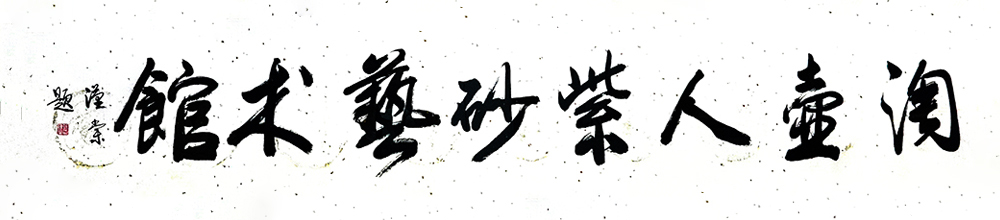 淘壺人紫砂藝术館
漢棠
題